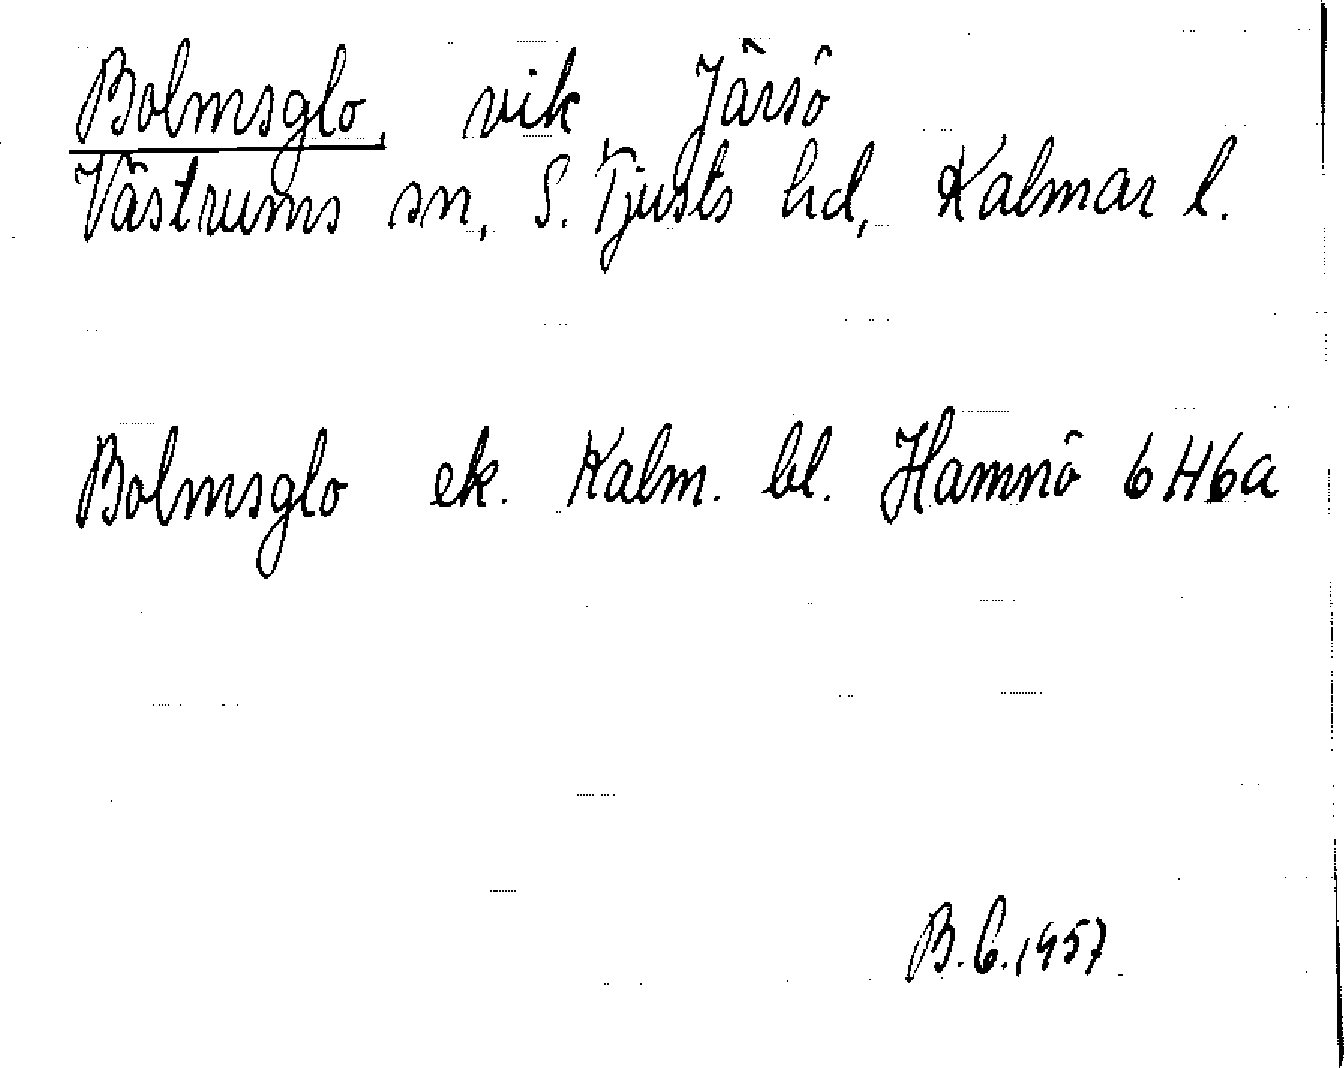 Bolmsglo, vik Järsö
Västrums sn, S. Tjusts hd, Kalmar l.
Bolmsglo ek. Kalm. bl. Hamnö 6H6a
B.G.1957